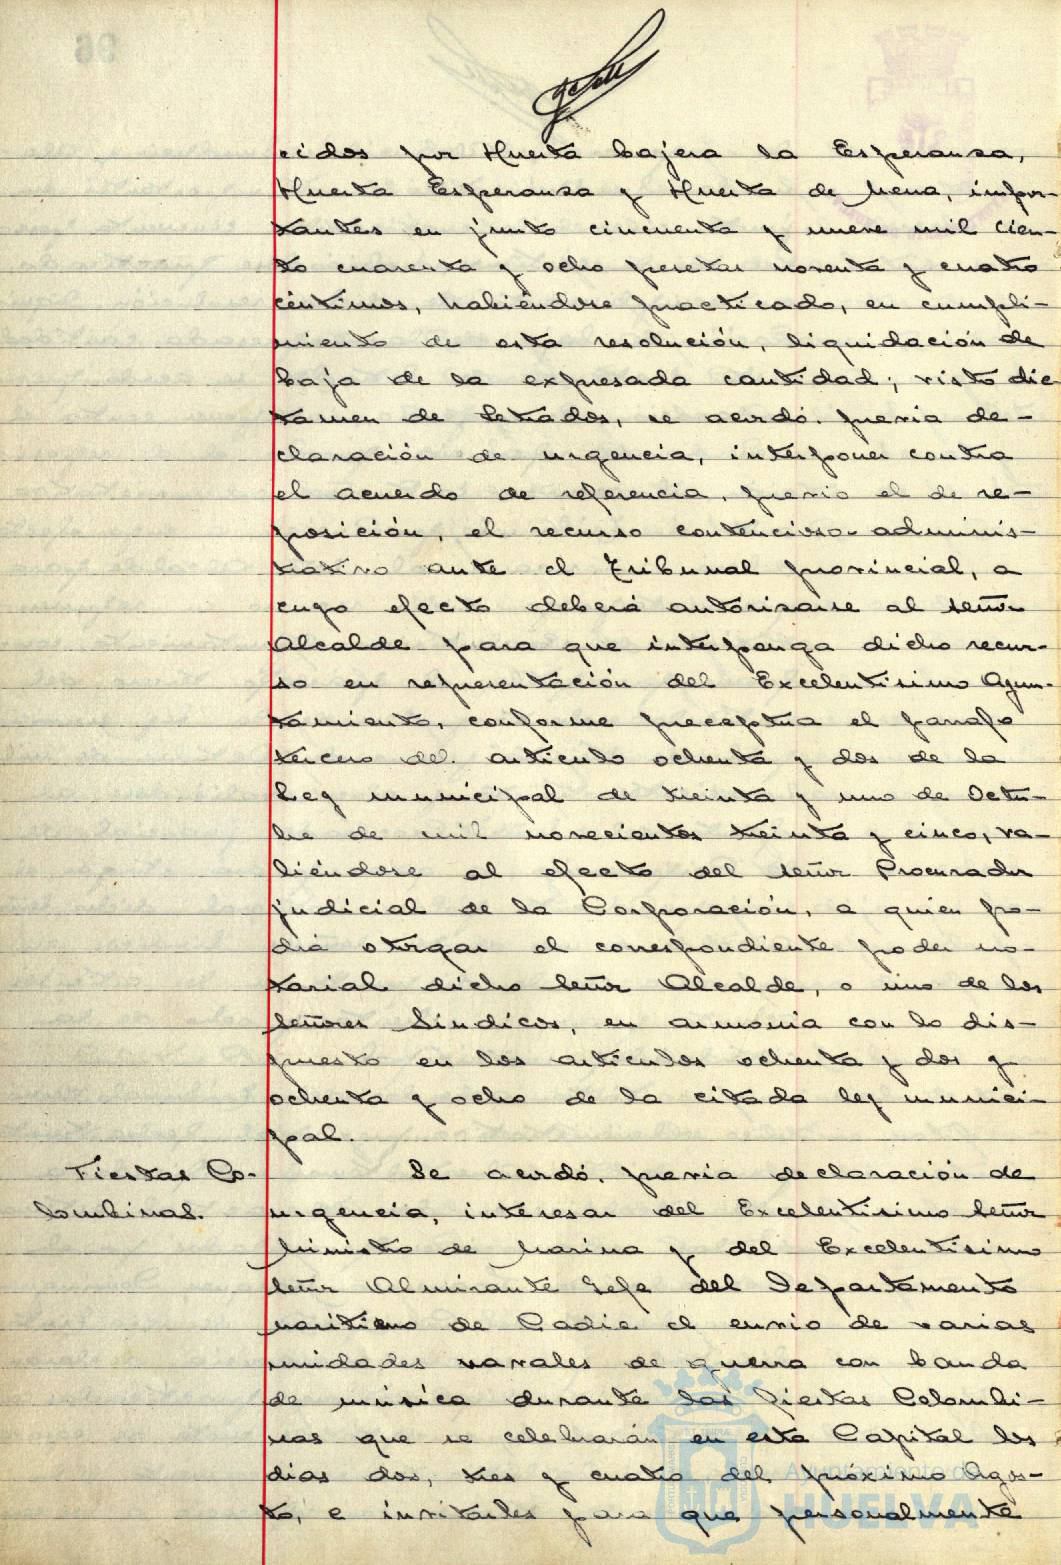 cidos por Huerta bajera la Esperanza,
Huerta Esperanza y Huerta de Mena, impor-
tantes en junto cincuenta y nueve mil cien-
to cuarenta y ocho pesetas noventa y cuatro
céntimos, habiéndose practicado, en cumpli-
miento de esta resolución, liquidación de
baja de la expresada cantidad; visto dic
tamen de Letrados, se acordó, previa de-
claración de urgencia, interponer contra
el acuerdo de referencia, previo el de re-
posición, el recurso contencioso-adminis-
trativo ante el Tribunal provincial, a
cuyo efecto deberá autorizarse al señor
Alcalde para que interponga dicho recur-
so en representación del Excelentísimo Ayun-
tamiento, conforme preceptua el párrafo
tercero del artículo ochenta y dos de la
Ley municipal de treinta y uno de Octu-
bre de mil novecientos treinta y cinco, va-
liéndose al efecto del señor Procurador
judicial de la Corporación, a quien po-
drá otorgar el correspondiente poder no-
tarial dicho señor Alcalde, o uno de los
señores Síndicos, en armonía con lo dis-
puesto en los artículos ochenta y dos y
ochenta y ocho de la citada ley munici-
pal.
Fiestas Co-
lombinas.
Se acordó, previa declaración de
urgencia, interesar del Excelentísimo señor
Ministro de Marina y del Excelentísimo
señor Almirante Jefe del Departamento
marítimo de Cadiz el envio de varias
unidades navales de guerra con banda
de música durante las fiestas Colombi-
nas que se celebrarán en esta Capital los
dias dos, tres y cuatro del próximo Agos-
to, e invitarles para que personalmente
Ayuntamiento de
HUELVA